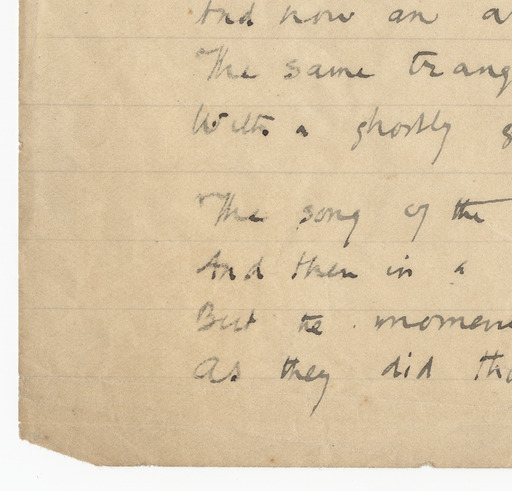 And now an a
The same trang
With a ghostly g
The song of the
And then in a
But the momen
As they did tho